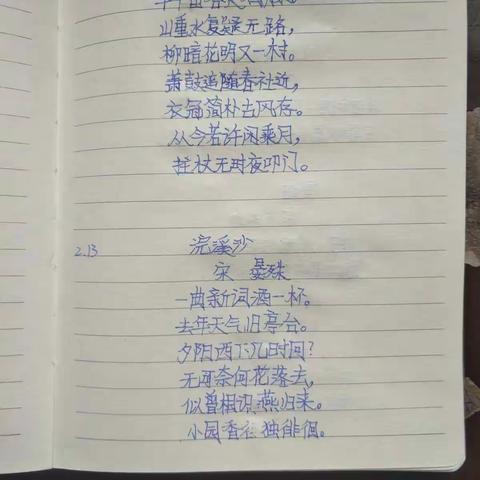 山重水复疑无路，
柳暗花明又一村。
萧鼓追随春社近，
衣冠简朴古风存。
从今若许闲乘月，
拄杖无时夜叩门。
2.13 浣溪沙
宋 晏殊
一曲新词酒一杯。
去年天气旧亭台。
夕阳西下几时回？
无可奈何花落去，
似曾相识燕归来。
小园香径独徘徊。